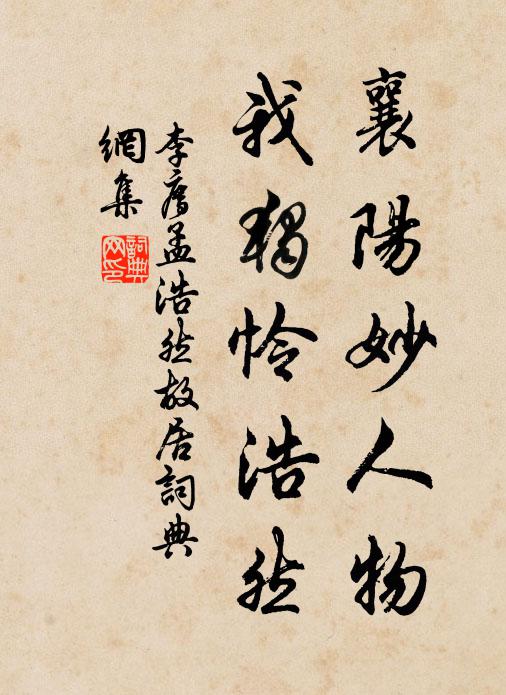 襄陽妙人物
我獨怜浩然
李膺孟浩然故居詞典
網集
詞典
网印